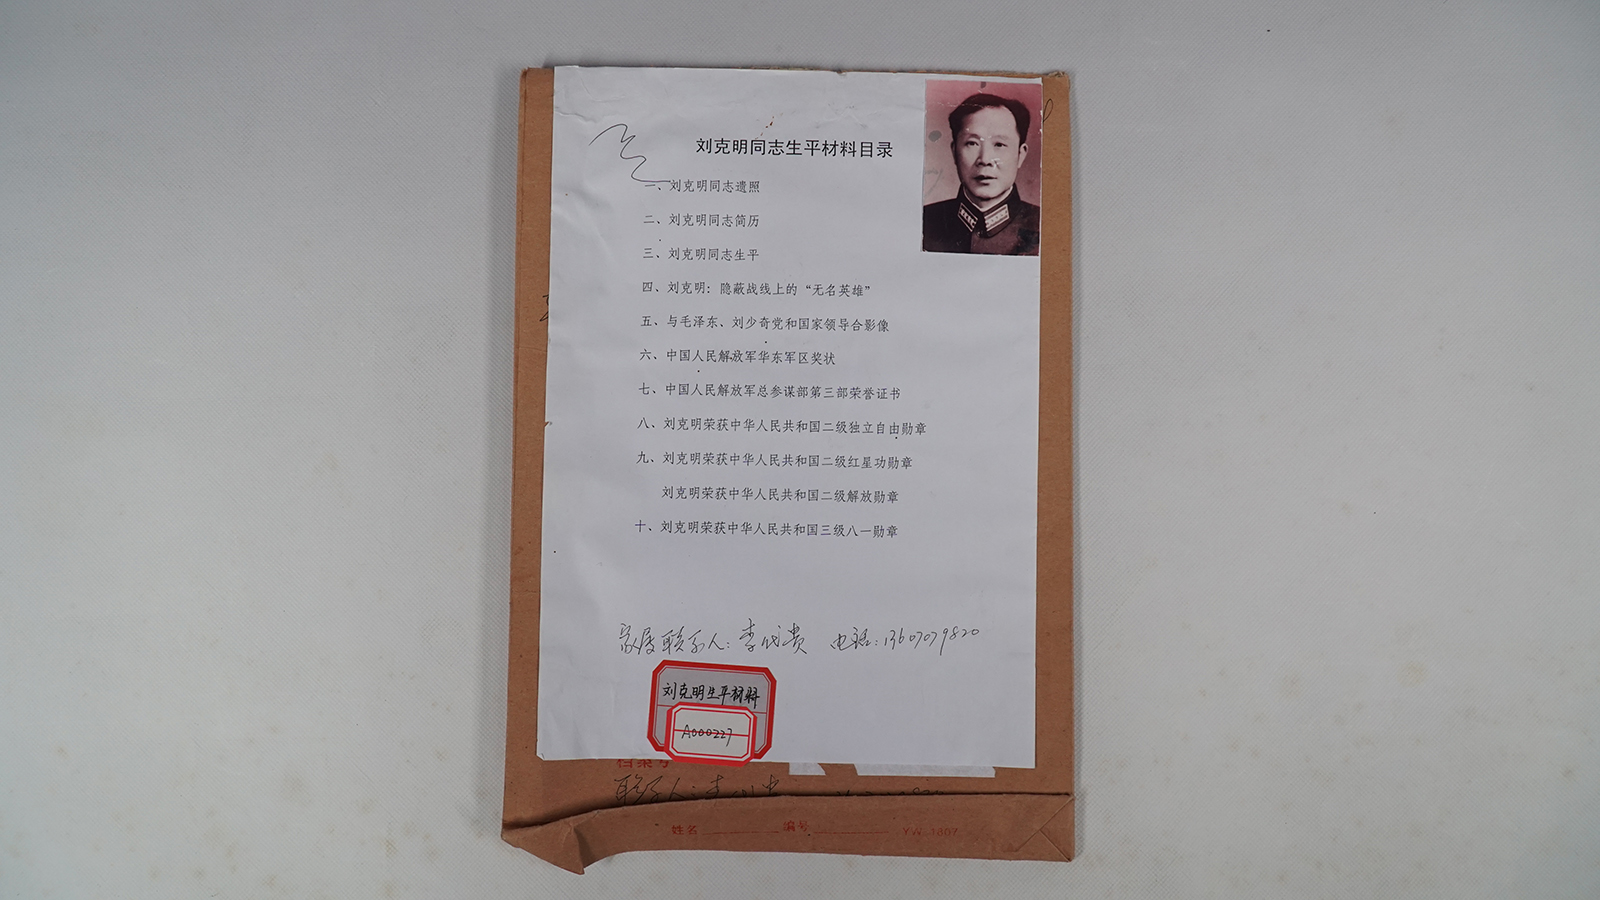 刘克明同志生平材料目录
一、刘克明同志遗照
二、刘克明同志简历
三、刘克明同志生平
四、刘克明：隐蔽战线上的“无名英雄”
五、与毛泽东、刘少奇党和国家领导合影像
六、中国人民解放军华东军区奖状
七、中国人民解放军总参谋部第三部荣誉证书
八、刘克明荣获中华人民共和国二级独立自由勋章
九、刘克明荣获中华人民共和国二级红星功勋章
刘克明荣获中华人民共和国二级解放勋章
十、刘克明荣获中华人民共和国三级八一勋章
家属联系人：李代贵 电话：13607079820
刘克明生平材料
A000227
档案号
联系人：李
姓名 编号 YW-1807